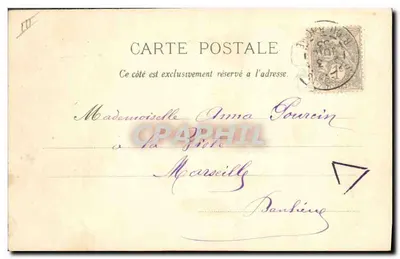 CARTE POSTALE
Ce côté est exclusivement réservé à l'adresse.
Mademoiselle Anna Sourcin
à la
Marseille
Banlieue
CPAPHIL